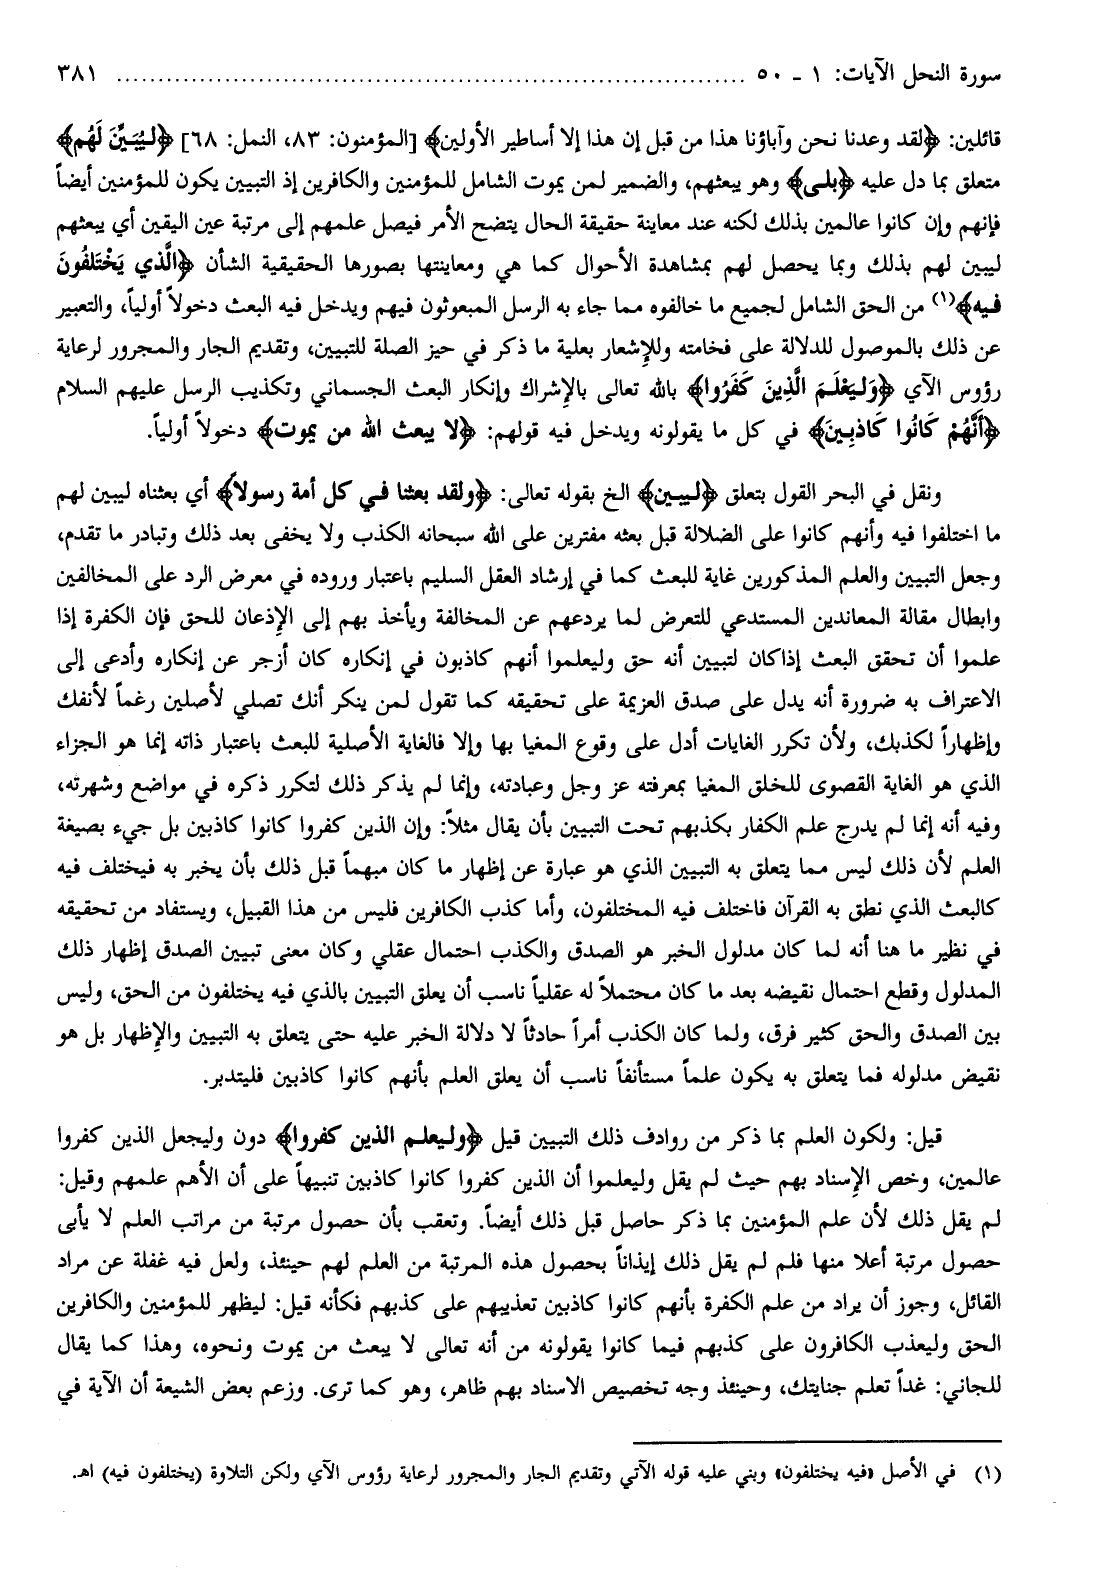 سورة النحل الآيات: ١ - ٥٠ ........................................................................... ٣٨١
قائلين: ﴿لقد وعدنا نحن وآباؤنا هذا من قبل إن هذا إلا أساطير الأولين﴾ [المؤمنون: ٨٣، النمل: ٦٨] ﴿لِيُبَيِّنَ لَهُم﴾
متعلق بما دل عليه ﴿بلى﴾ وهو يبعثهم، والضمير لمن يموت الشامل للمؤمنين والكافرين إذ التبيين يكون للمؤمنين أيضاً
فإنهم وإن كانوا عالمين بذلك لكنه عند معاينة حقيقة الحال يتضح الأمر فيصل علمهم إلى مرتبة عين اليقين أي يبعثهم
ليبين لهم بذلك وبما يحصل لهم بمشاهدة الأحوال كما هي ومعاينتها بصورها الحقيقية الشأن ﴿الَّذي يَخْتَلفُونَ
فيه﴾(١) من الحق الشامل لجميع ما خالفوه مما جاء به الرسل المبعوثون فيهم ويدخل فيه البعث دخولاً أولياً، والتعبير
عن ذلك بالموصول للدلالة على فخامته وللإشعار بعلية ما ذكر في حيز الصلة للتبيين، وتقديم الجار والمجرور لرعاية
رؤوس الآي ﴿وَلِيَعْلَمَ الَّذِينَ كَفَرُوا﴾ بالله تعالى بالإشراك وإنكار البعث الجسماني وتكذيب الرسل عليهم السلام
﴿أَنَّهُمْ كَانُوا كَاذبِينَ﴾ في كل ما يقولونه ويدخل فيه قولهم: ﴿لا يبعث الله من يموت﴾ دخولاً أولياً.
ونقل في البحر القول بتعلق ﴿ليبين﴾ الخ بقوله تعالى: ﴿ولقد بعثنا في كل أمة رسولاً﴾ أي بعثناه ليبين لهم
ما اختلفوا فيه وأنهم كانوا على الضلالة قبل بعثه مفترين على الله سبحانه الكذب ولا يخفى بعد ذلك وتبادر ما تقدم،
وجعل التبيين والعلم المذكورين غاية للبعث كما في إرشاد العقل السليم باعتبار وروده في معرض الرد على المخالفين
وابطال مقالة المعاندين المستدعي للتعرض لما يردعهم عن المخالفة ويأخذ بهم إلى الإذعان للحق فإن الكفرة إذا
علموا أن تحقق البعث إذاكان لتبيين أنه حق وليعلموا أنهم كاذبون في إنكاره كان أزجر عن إنكاره وأدعى إلى
الاعتراف به ضرورة أنه يدل على صدق العزيمة على تحقيقه كما تقول لمن ينكر أنك تصلي لأصلين رغماً لأنفك
وإظهاراً لكذبك، ولأن تكرر الغايات أدل على وقوع المغيا بها وإلا فالغاية الأصلية للبعث باعتبار ذاته إنما هو الجزاء
الذي هو الغاية القصوى للخلق المغيا بمعرفته عز وجل وعبادته، وإنما لم يذكر ذلك لتكرر ذكره في مواضع وشهرته،
وفيه أنه إنما لم يدرج علم الكفار بكذبهم تحت التبيين بأن يقال مثلاً: وإن الذين كفروا كانوا كاذبين بل جيء بصيغة
العلم لأن ذلك ليس مما يتعلق به التبيين الذي هو عبارة عن إظهار ما كان مبهماً قبل ذلك بأن يخبر به فيختلف فيه
كالبعث الذي نطق به القرآن فاختلف فيه المختلفون، وأما كذب الكافرين فليس من هذا القبيل، ويستفاد من تحقيقه
في نظير ما هنا أنه لما كان مدلول الخبر هو الصدق والكذب احتمال عقلي وكان معنى تبيين الصدق إظهار ذلك
المدلول وقطع احتمال نقيضه بعد ما كان محتملاً له عقلياً ناسب أن يعلق التبيين بالذي فيه يختلفون من الحق، وليس
بين الصدق والحق كثير فرق، ولما كان الكذب أمراً حادثاً لا دلالة الخبر عليه حتى يتعلق به التبيين والإظهار بل هو
نقيض مدلوله فما يتعلق به يكون علماً مستأنفاً ناسب أن يعلق العلم بأنهم كانوا كاذبين فليتدبر.
قيل: ولكون العلم بما ذكر من روادف ذلك التبيين قيل ﴿وليعلم الذين كفروا﴾ دون وليجعل الذين كفروا
عالمين، وخص الإسناد بهم حيث لم يقل وليعلموا أن الذين كفروا كانوا كاذبين تنبيهاً على أن الأهم علمهم وقيل:
لم يقل ذلك لأن علم المؤمنين بما ذكر حاصل قبل ذلك أيضاً. وتعقب بأن حصول مرتبة من مراتب العلم لا يأبى
حصول مرتبة أعلا منها فلم لم يقل ذلك إيذاناً بحصول هذه المرتبة من العلم لهم حينئذ، ولعل فيه غفلة عن مراد
القائل، وجوز أن يراد من علم الكفرة بأنهم كانوا كاذبين تعذيبهم على كذبهم فكأنه قيل: ليظهر للمؤمنين والكافرين
الحق وليعذب الكافرون على كذبهم فيما كانوا يقولونه من أنه تعالى لا يبعث من يموت ونحوه، وهذا كما يقال
للجاني: غداً تعلم جنايتك، وحينئذ وجه تخصيص الاسناد بهم ظاهر، وهو كما ترى. وزعم بعض الشيعة أن الآية في
(١) في الأصل «فيه يختلفون» وبني عليه قوله الآتي وتقديم الجار والمجرور لرعاية رؤوس الآي ولكن التلاوة (يختلفون فيه) اهـ.